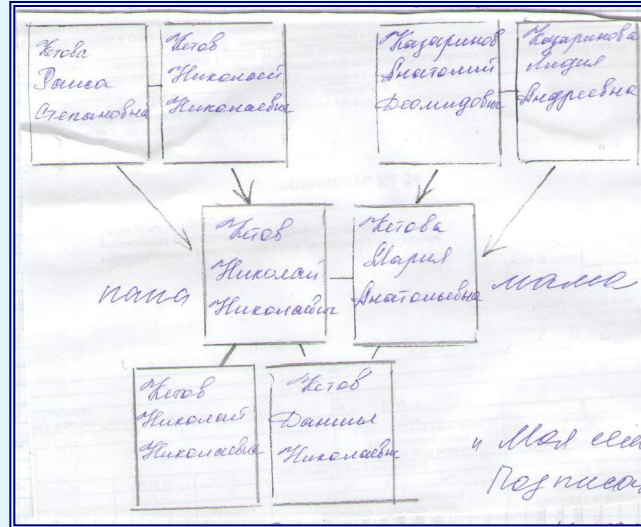 Кетова
Раиса
Степановна
Кетов
Николай
Николаевич
Казаринов
Анатолий
Деомидович
Казаринова
Лидия
Андреевна
папа
Кетов
Николай
Николаевич
Кетова
Мария
Анатольевна
мама
Кетов
Николай
Николаевич
Кетов
Даниил
Николаевич
" Моя